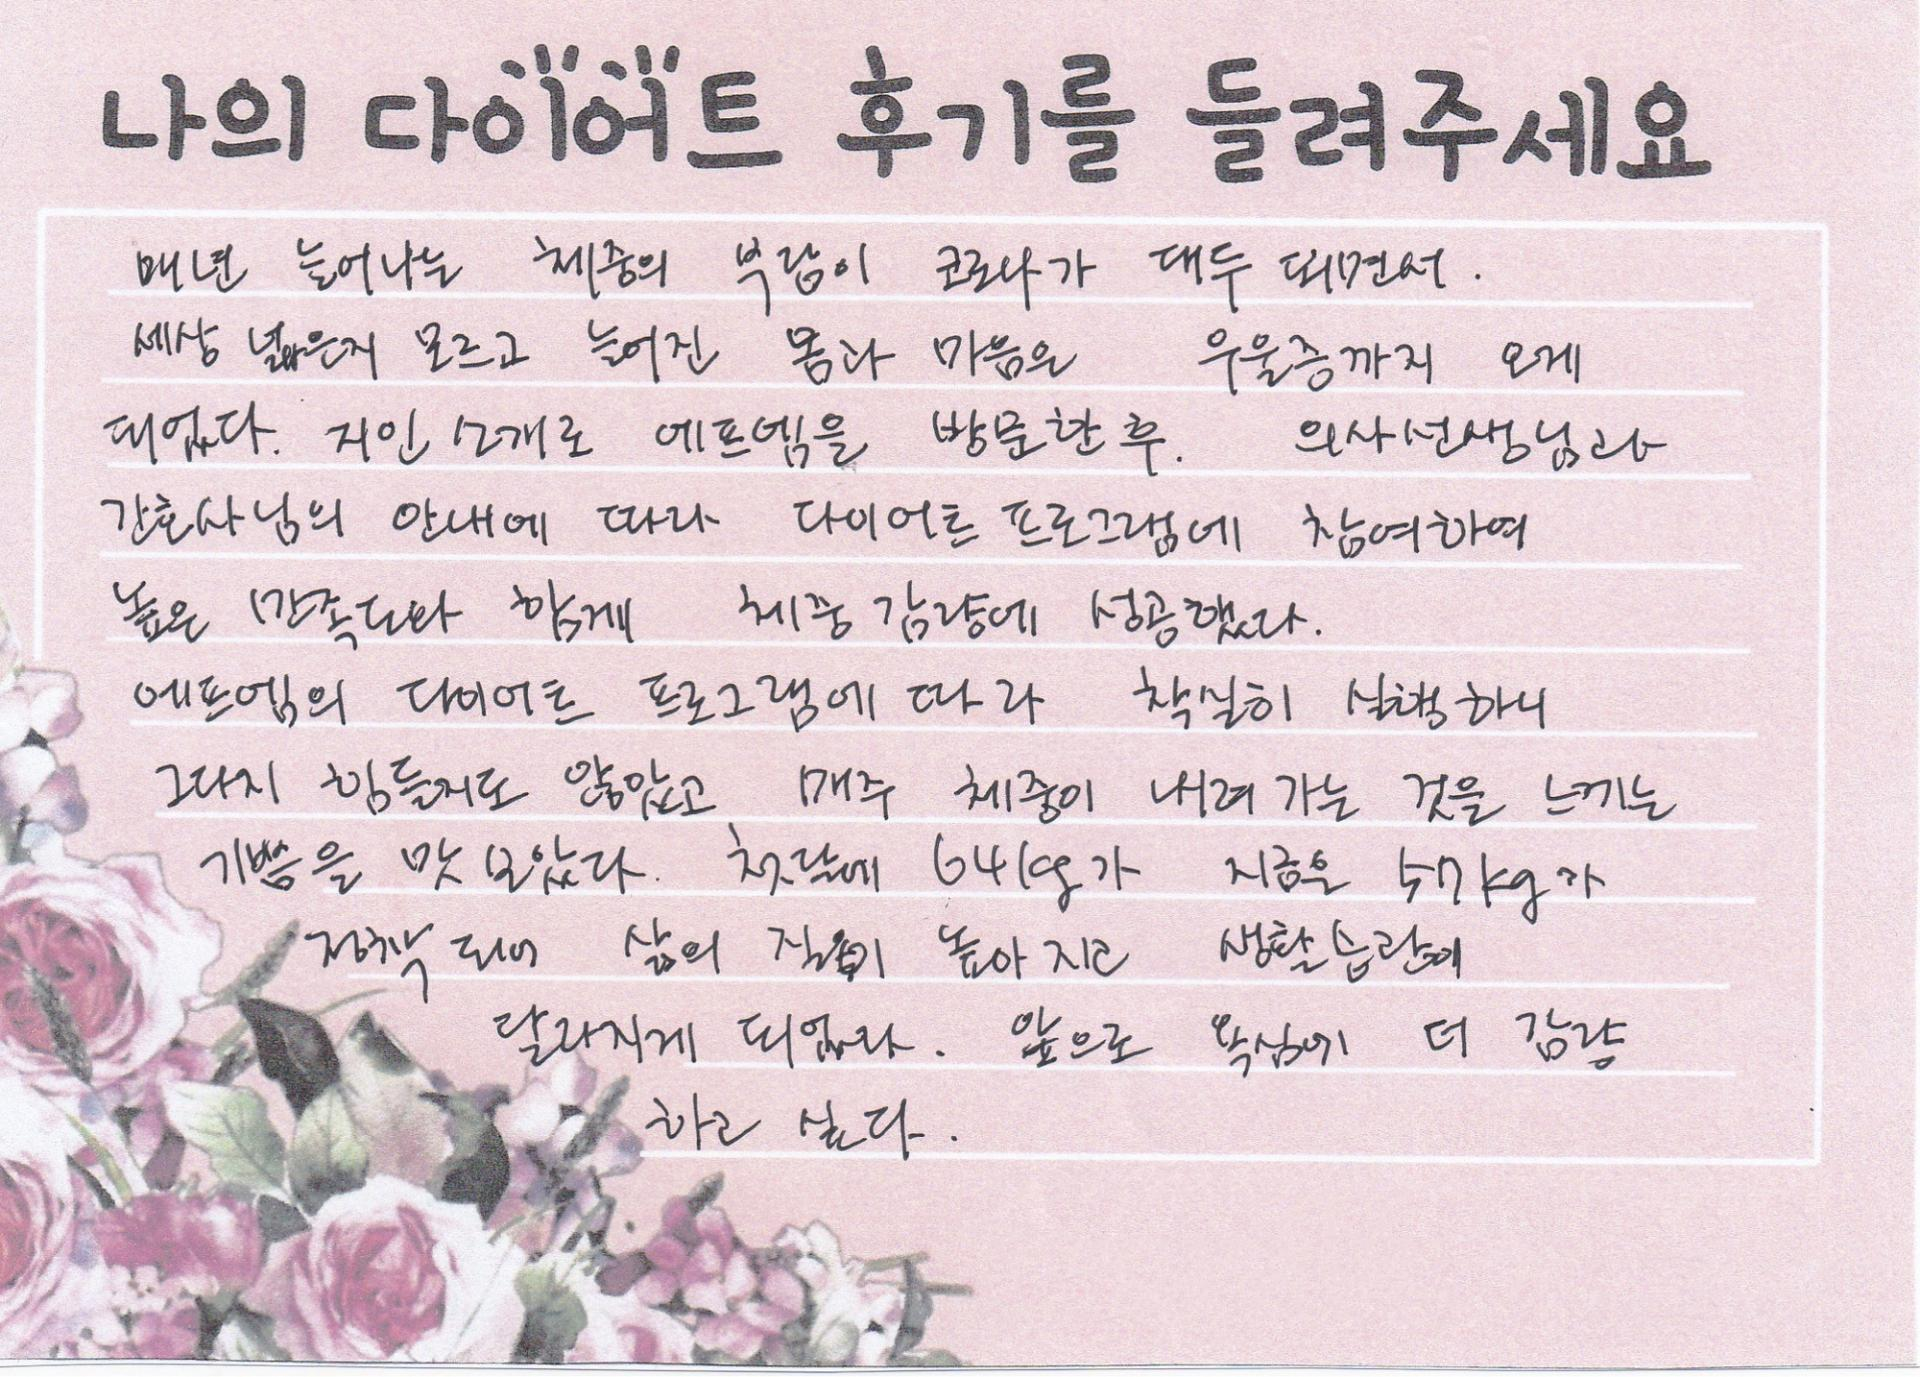 나의 다이어트 후기를 들려주세요
매년 늘어나는 체중의 부담이 코로나가 대두 되면서.
세상 넓은지 모르고 늘어진 몸과 마음은 우울증까지 오게
되었다. 지인 소개로 에프엠을 방문한 후. 의사선생님과
간호사님의 안내에 따라 다이어트 프로그램에 참여하여
높은 만족도와 함께 체중 감량에 성공했다.
에프엠의 다이어트 프로그램에 따라 착실히 실행하니
그다지 힘들지도 않았고 매주 체중이 내려가는 것을 느끼는
기쁨을 맛보았다. 첫달에 64kg가 지금은 57kg가
정착되어 삶의 질이 높아지고 생활습관에
달라지게 되었다. 앞으로 욕심에 더 감량
하고 싶다.